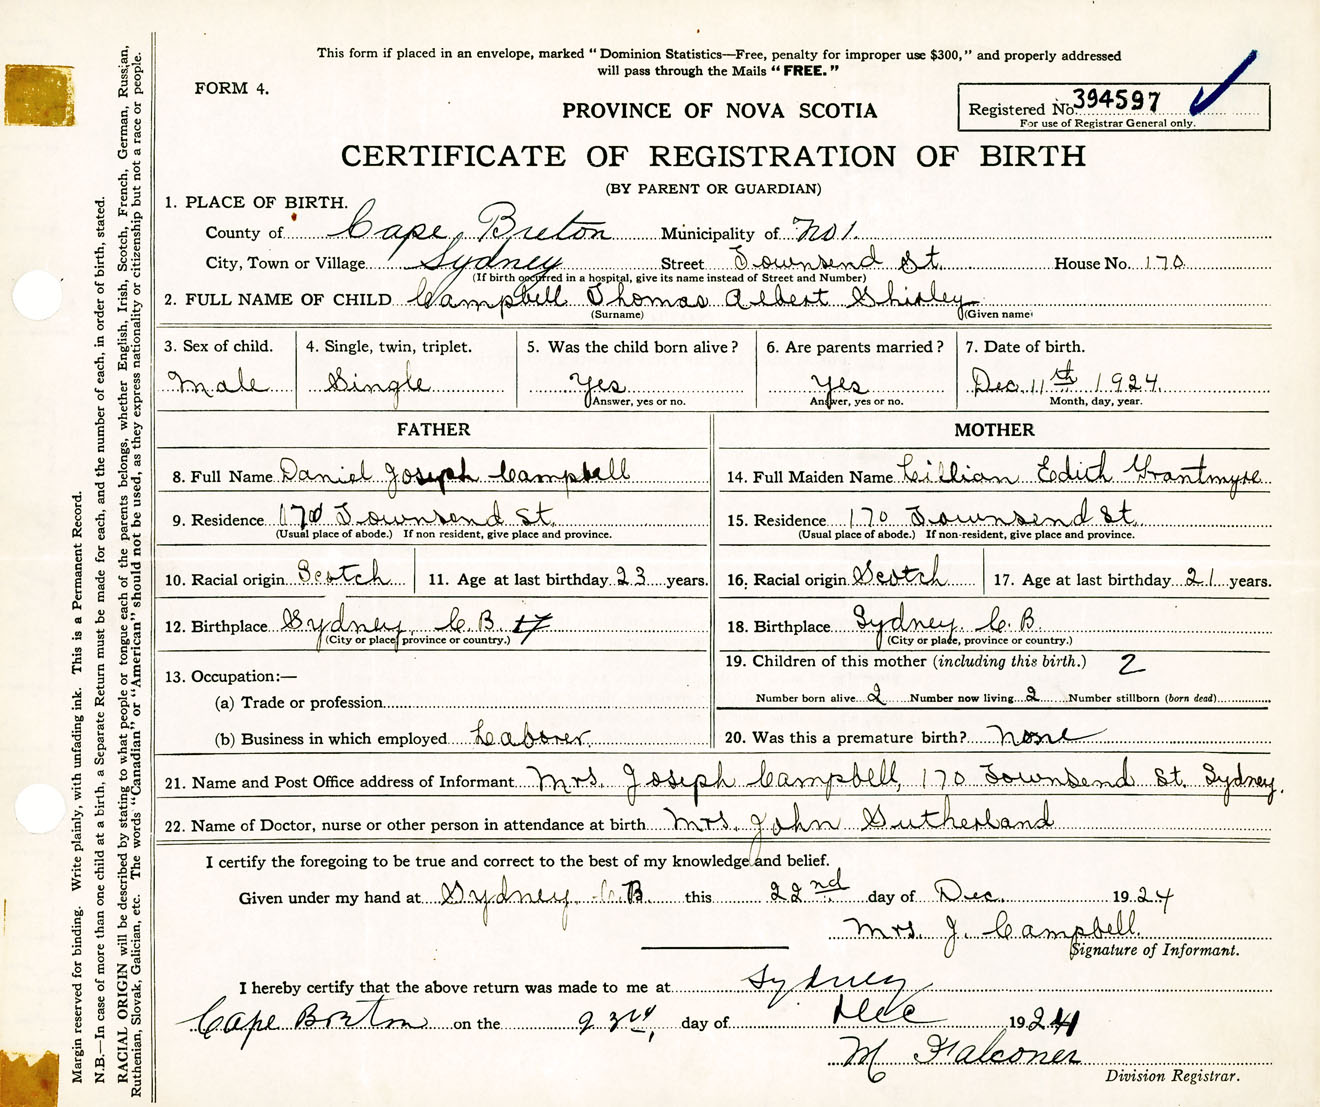 This form if placed in an envelope, marked "Dominion Statistics—Free, penalty for improper use $300," and properly addressed
will pass through the Mails "FREE."
FORM 4.
PROVINCE OF NOVA SCOTIA
Registered No. 394597
For use of Registrar General only.
CERTIFICATE OF REGISTRATION OF BIRTH
(BY PARENT OR GUARDIAN)
1. PLACE OF BIRTH.
County of Cape Breton Municipality of No 1.
City, Town or Village Sydney Street Townsend St. House No. 170
(If birth occurred in a hospital, give its name instead of Street and Number)
2. FULL NAME OF CHILD Campbell Thomas Albert Shirley
(Surname) (Given name)
3. Sex of child. 4. Single, twin, triplet. 5. Was the child born alive? 6. Are parents married? 7. Date of birth.
Male Single Yes Yes Dec 11th 1924
Answer, yes or no. Answer, yes or no. Month, day, year.
FATHER MOTHER
8. Full Name Daniel Joseph Campbell 14. Full Maiden Name Lillian Edith Grantmyre
9. Residence 170 Townsend St. 15. Residence 170 Townsend St.
(Usual place of abode.) If non resident, give place and province. (Usual place of abode.) If non-resident, give place and province.
10. Racial origin Scotch 11. Age at last birthday 23 years. 16. Racial origin Scotch 17. Age at last birthday 21 years.
12. Birthplace Sydney, C.B. 18. Birthplace Sydney. C.B.
(City or place, province or country.) (City or place, province or country.)
13. Occupation:— 19. Children of this mother (including this birth.) 2
(a) Trade or profession Number born alive 2 Number now living 2 Number stillborn (born dead)
(b) Business in which employed Laborer. 20. Was this a premature birth? none
21. Name and Post Office address of Informant Mrs. Joseph Campbell, 170 Townsend St. Sydney.
22. Name of Doctor, nurse or other person in attendance at birth Mrs. John Sutherland
I certify the foregoing to be true and correct to the best of my knowledge and belief.
Given under my hand at Sydney, C.B. this 22nd day of Dec. 1924
Mrs. J. Campbell.
Signature of Informant.
I hereby certify that the above return was made to me at Sydney
Cape Breton on the 23rd, day of Dec 1924
M Falconer
Division Registrar.
Margin reserved for binding. Write plainly, with unfading ink. This is a Permanent Record.
N.B.—In case of more than one child at a birth, a Separate Return must be made for each, and the number of each, in order of birth, stated.
RACIAL ORIGIN will be described by stating to what people or tongue each of the parents belongs, whether English, Irish, Scotch, French, German, Russian,
Ruthenian, Slovak, Galician, etc. The words "Canadian" or "American" should not be used, as they express nationality or citizenship but not a race or people.